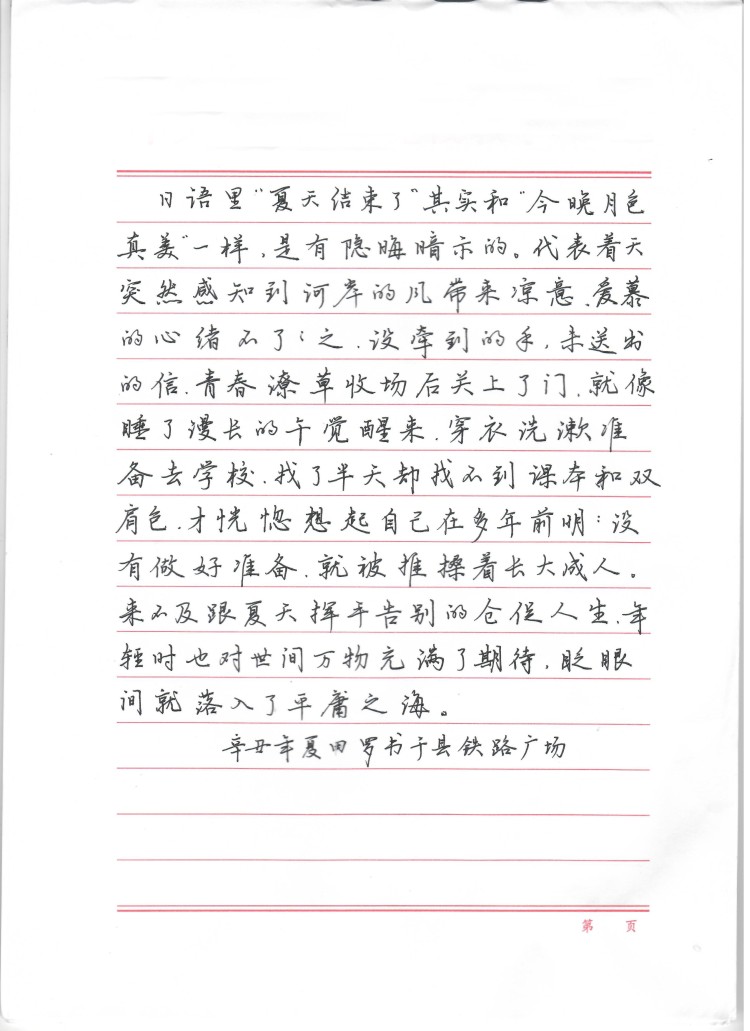 日语里“夏天结束了”其实和“今晚月色
真美”一样,是有隐晦暗示的。代表着天
突然感知到河岸的风带来凉意、爱慕
的心绪不了了之、没牵到的手,未送出
的信、青春潦草收场后关上了门、就像
睡了漫长的午觉醒来、穿衣洗漱准
备去学校、找了半天却找不到课本和双
肩包、才恍惚想起自己在多年前明:没
有做好准备、就被推搡着长大成人。
来不及跟夏天挥手告别的仓促人生、年
轻时也对世间万物充满了期待,眨眼
间就落入了平庸之海。
辛丑年夏田罗书于县铁路广场
第 页